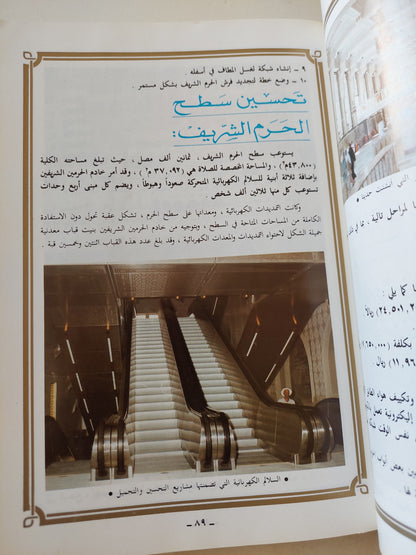 ٩ ــ إنشاء شبكة لغسل المطاف في أسفله .
١٠ ــ وضع خطة لتجديد فرش الحرم الشريف بشكل مستمر .
تحسين سطح
الحرم الشريف :
يستوعب سطح الحرم الشريف ، ثمانين ألف مصل ، حيث تبلغ مساحته الكلية
(٤٣,٨٠٠م٢) ، والمساحة المخصصة للصلاة هي (٣٧,٠٩٢م٢) ، وقد أمر خادم الحرمين الشريفين
بإضافة ثلاثة أبنية للسلالم الكهربائية المتحركة صعوداً وهبوطاً ، ويضم كل مبنى أربع وحدات
تستوعب كل منها ثلاثين ألف شخص .
وكانت التمديدات الكهربائية ، ومعداتها على سطح الحرم ، تشكل عقبة تحول دون الاستفادة
الكاملة من المساحات المتاحة في السطح ، وبتوجيه من خادم الحرمين الشريفين بنيت قباب معدنية
جميلة الشكل لاحتواء التمديدات والمعدات الكهربائية ، وقد بلغ عدد هذه القباب اثنتين وخمسين قبة .
● السلالم الكهربائية التي تضمنتها مشاريع التحسين والتجميل ●
ــ ٨٩ ــ
لمراحل تالية ، مما في
ا كما يلي :
ريالاً
بتكلفة (٦٥٠,٠٠٠)
ريال
وتكييف هواء
إليكترونية تعمل
نفس الوقت
بعض أبواب